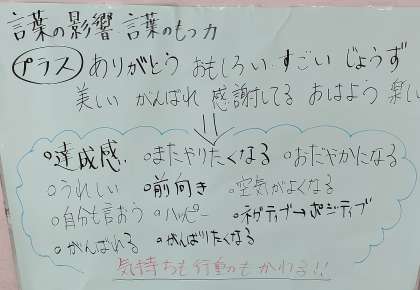 言葉の影響 言葉のもつ力
プラス ありがとう おもしろい すごい じょうず
美しい がんばれ 感謝してる おはよう 楽し
⇓
○達成感. ○またやりたくなる ○おだやかになる
○うれしい ○前向き ○空気がよくなる
○自分も言おう ○ハッピー ○ネガティブ→ポジティブ
○がんばれる ○がんばりたくなる
気持ちも行動もかわる!!